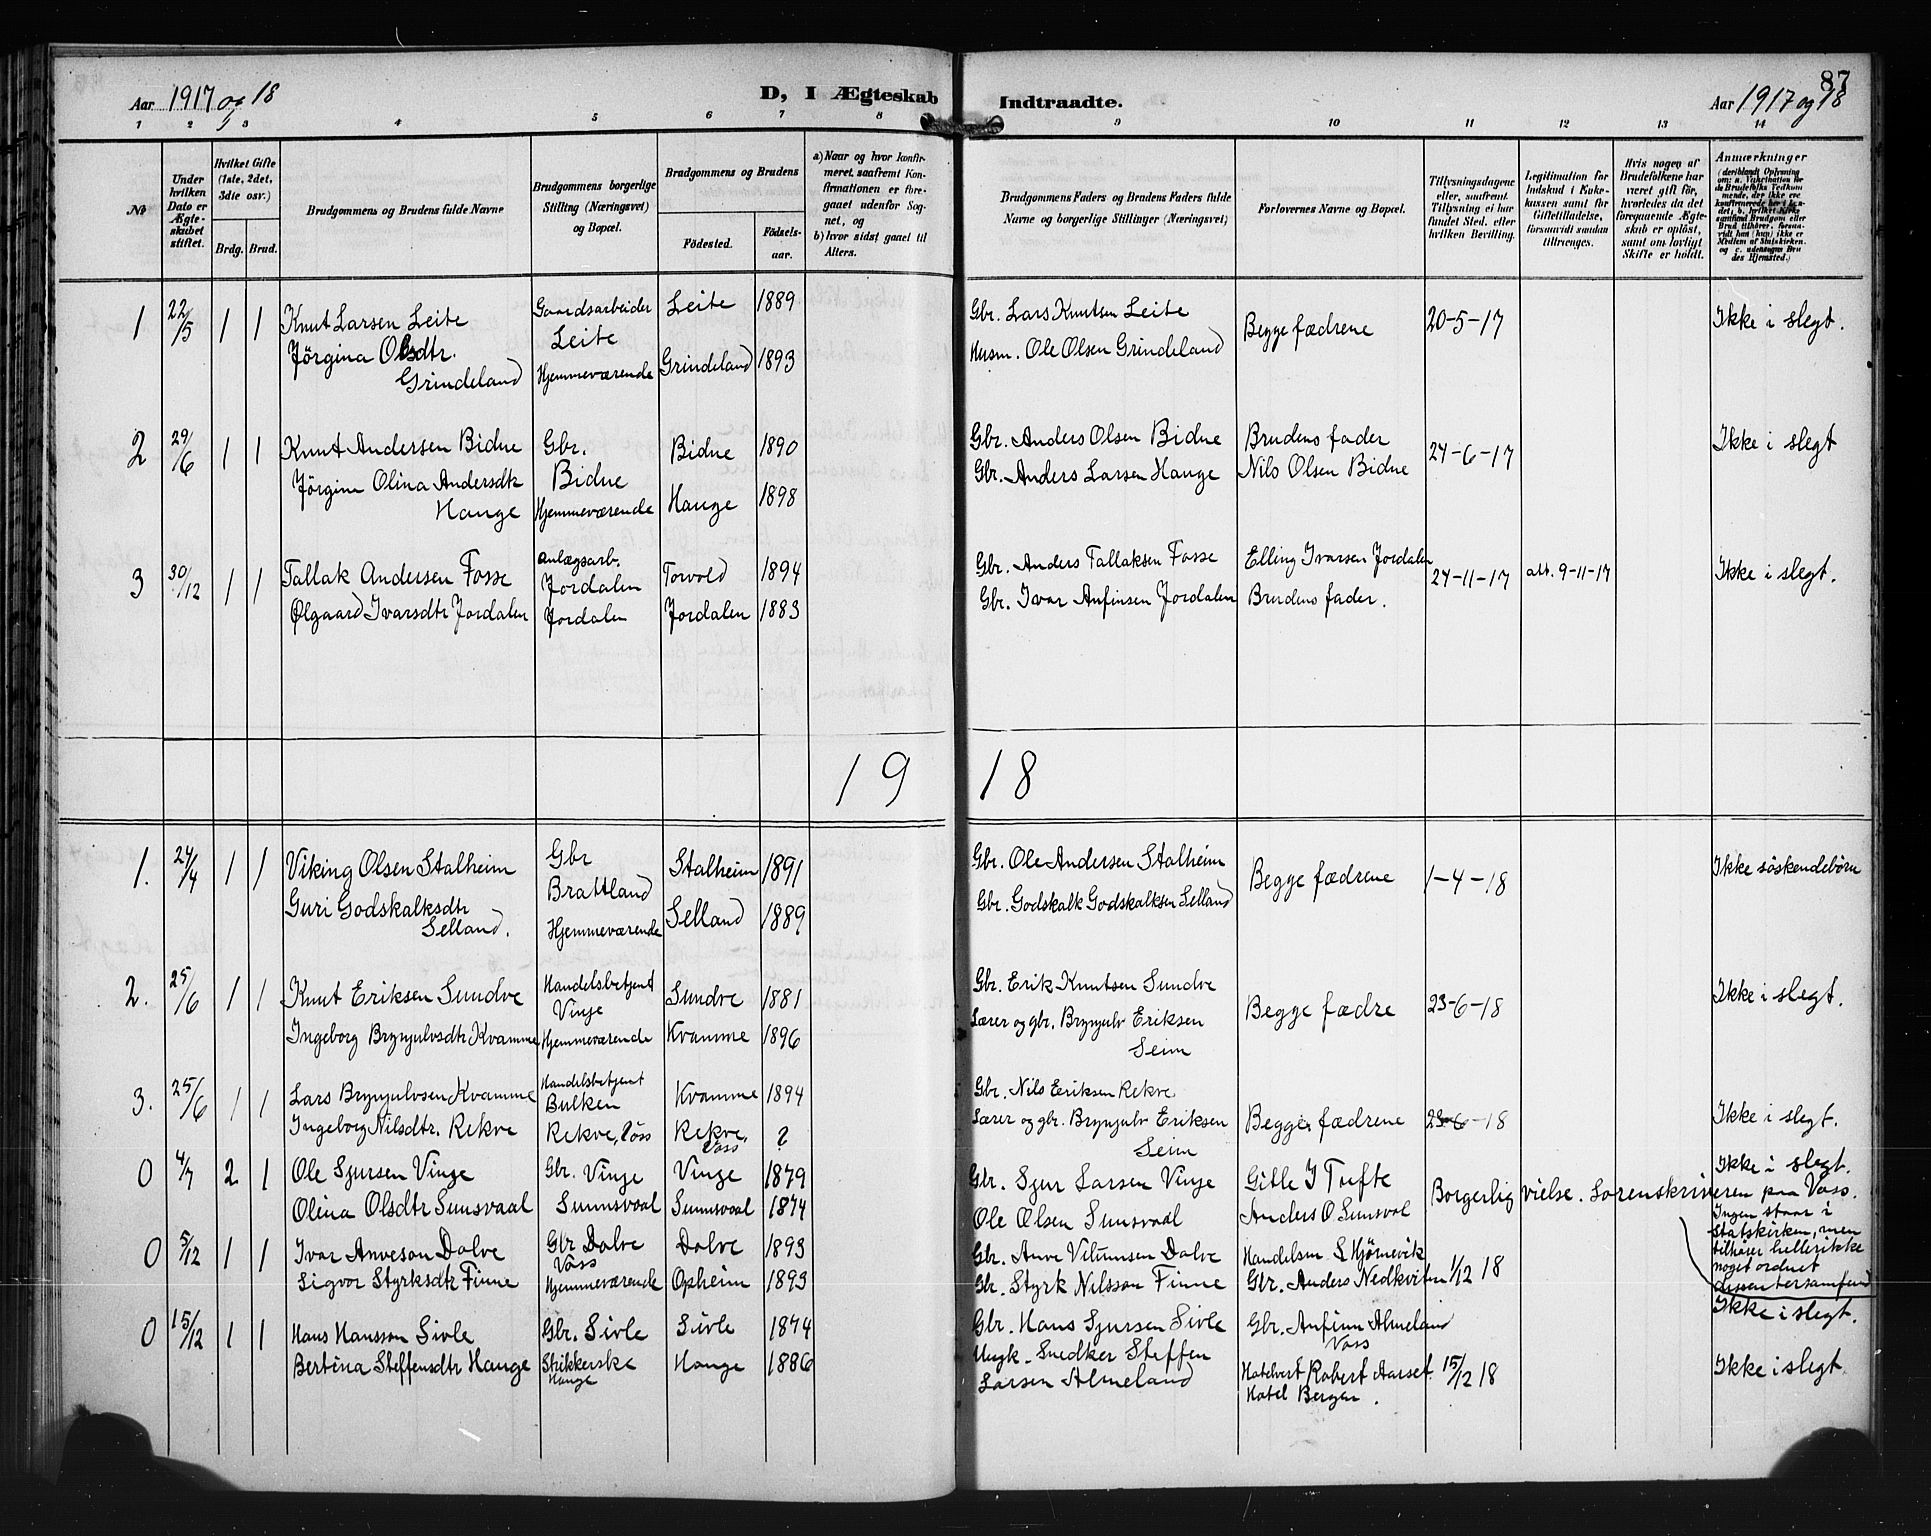 87
Aar 1917 og 18
D, I Ægteskab Indtraadte.
Aar 1917 og 18
1 2 3 4 5 6 7 8 9 10 11 12 13 14
No
Under hvilken Dato er Ægteskabet stiftet.
Hvilket Gifte (1ste, 2det, 3die osv.)
Brdg. Brud.
Brudgommens og Brudens fulde Navne
Brudgommens borgerlige Stilling (Næringsvei) og Bopæl.
Brudgommens og Brudens
Födested. Födselsaar.
a) Naar og hvor konfirmeret, saafremt Konfirmationen er foregaaet udenfor Sognet, og
b) hvor sidst gaaet til Alters.
Brudgommens Faders og Brudens Faders fulde Navne og borgerlige Stillinger (Næringsvei)
Forlovernes Navne og Bopæl.
Tillysningsdagene eller, saafremt Tillysning ei har fundet Sted, efter hvilken Bevilling.
Legitimation for Indskud i Enkekassen samt for Giftetilladelse, forsaavidt saadan tiltrænges.
Hvis nogen af Brudefolkene har været gift för, hvorledes da det foregaaende Ægteskab er oplöst, samt om lovligt Skifte er holdt.
Anmærkninger
1 22/5 1 1 Knut Larsen Leite Gaardsarbeider Leite Leite 1889 Gbr. Lars Knutsen Leite Begge fædrene 20-5-17 Ikke i slegt.
Jörgina Olsdtr. Grindeland Hjemmeværende Grindeland 1893 Husm. Ole Olsen Grindeland
2 29/6 1 1 Knut Andersen Bidne Gbr. Bidne Bidne 1890 Gbr. Anders Olsen Bidne Brudens fader 24-6-17 Ikke i slegt
Jörgine Olina Andersdtr Hauge Hjemmeværende Hauge 1898 Gbr. Anders Larsen Hauge Nils Olsen Bidne
3 30/12 1 1 Tallak Andersen Fosse Anlægsarb. Jordalen Torvold 1894 Gbr. Anders Tallaksen Fosse Elling Ivarsen Jordalen 24-11-17 att. 9-11-17 Ikke i slegt.
Ølgaard Ivarsdtr Jordalen Jordalen Jordalen 1883 Gbr. Ivar Anfinsen Jordalen Brudens fader.
19 18
1. 24/4 1 1 Viking Olsen Stalheim Gbr Brattland Stalheim 1891 Gbr. Ole Andersen Stalheim Begge fædrene 1-4-18 Ikke söskendebörn
Guri Godskalksdtr Selland. Hjemmeværende Selland 1889 Gbr. Godskalk Godskalksen Selland
2. 25/6 1 1 Knut Eriksen Sundve Handelsbetjent Vinje Sundve 1881 Gbr. Erik Knutsen Sundve Begge fædre 23-6-18 Ikke i slegt.
Ingeborg Brynjulvsdtr Kvamme Hjemmeværende Kvamme 1896 Lærer og gbr. Brynjulv Eriksen Seim
3. 25/6 1 1 Lars Brynjulvsen Kvamme Handelsbetjent Bulken Kvamme 1894 Gbr. Nils Eriksen Rekve Begge fædrene 23-6-18 Ikke i slegt.
Ingeborg Nilsdtr. Rekve Rekve, Voss Rekve, Voss ? Lærer og gbr. Brynjulv Eriksen Seim
0 4/7 2 1 Ole Sjursen Vinje Gbr. Vinje Vinje 1879 Gbr. Sjur Larsen Vinje Gitle J Tufte Borgerlig vielse. Sorenskriveren paa Voss. Ikke i slegt.
Olina Olsdtr Sunsvaal Sunnsvaal Sunnsvaal 1874 Ole Olsen Sunsvaal Anders O Sunsval
0 5/12 1 1 Ivar Anveson Dolve Gbr Dolve Voss Dolve 1893 Gbr. Anve Vilumsen Dolve Handelsm S Hjörnevik 1/12 18 Ingen staar i Statskirken, men tilhører heller ikke noget ordnet dissentersamfund
Sigvor Styrksdtr Finne Hjemmeværende Opheim 1893 Gbr. Styrk Nilsson Finne Gbr. Anders Nedkviten Ikke i slegt.
0 15/12 1 1 Hans Hansson Sivle Gbr. Sivle Sivle 1874 Gbr. Hans Sjursen Sivle Gbr. Anfinn Almeland Voss 15/12 18 Ikke i slegt
Bertina Steffensdtr Hauge Strikkerske Hauge Hauge 1886 Ungk. Snedker Steffen Larsen Almeland Hotelvert Robert Aarset Hotel Bergen.